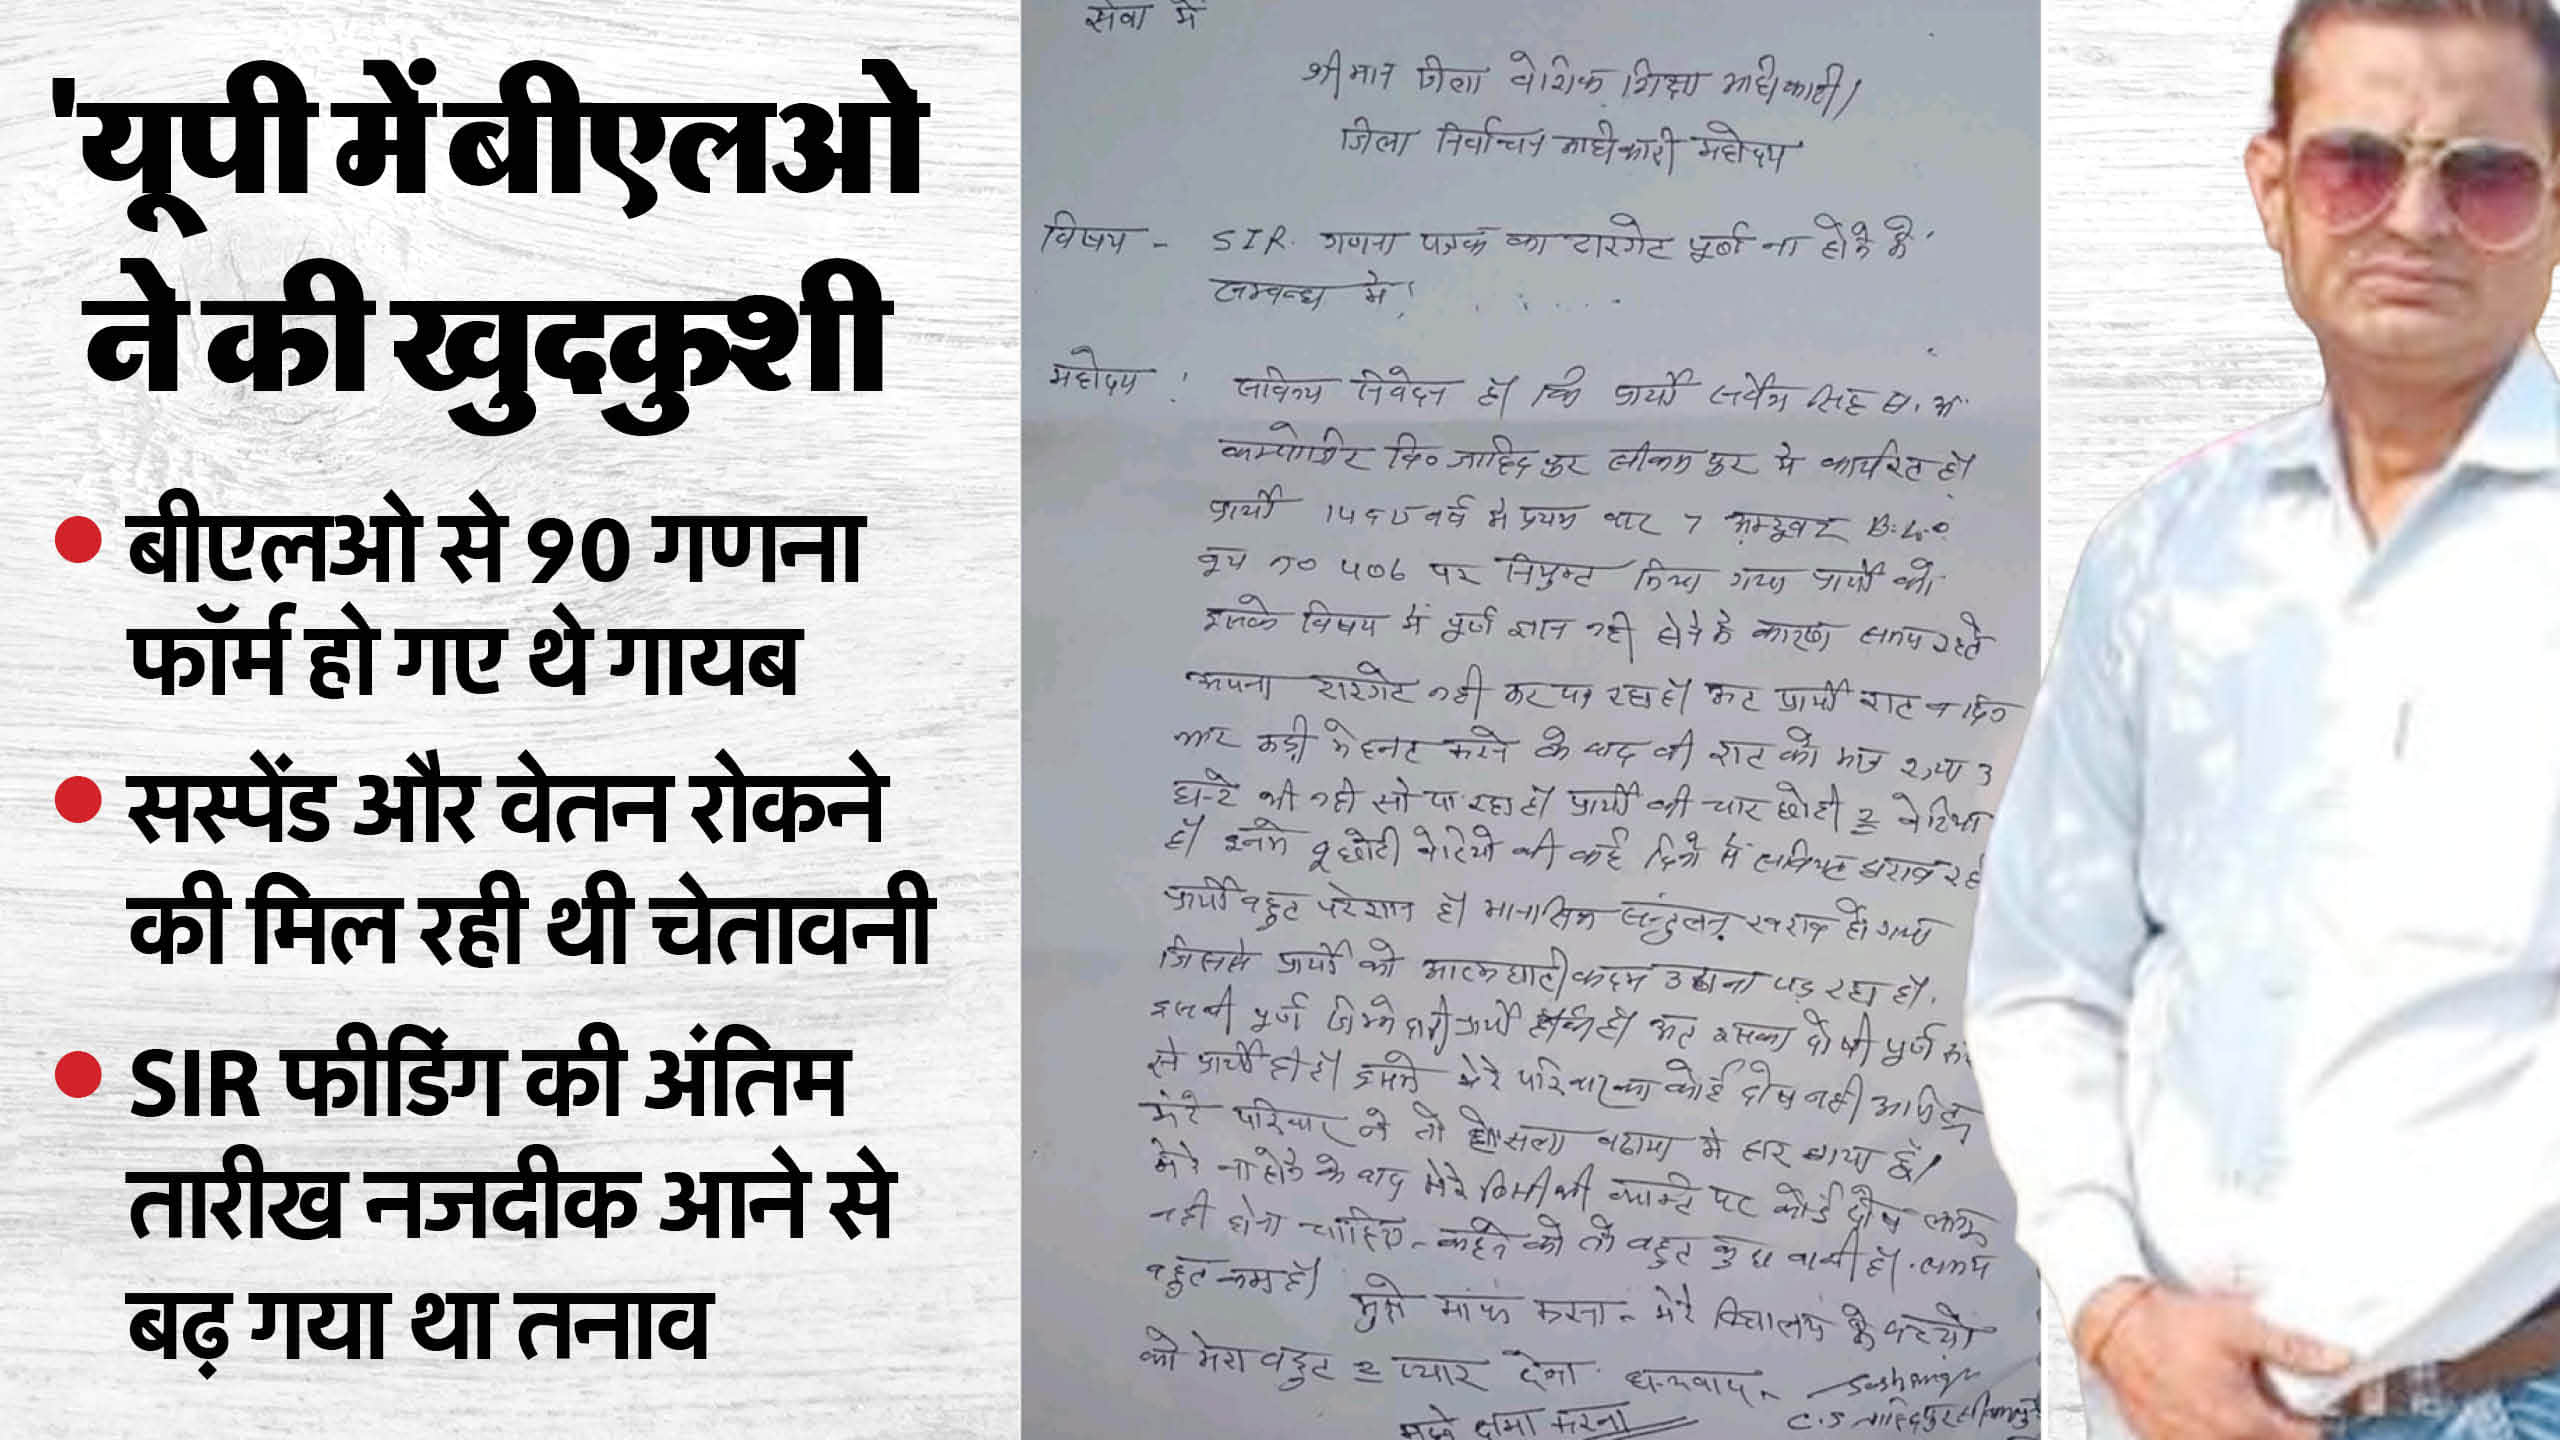 'यूपी में बीएलओ
ने की खुदकुशी
बीएलओ से 90 गणना
फॉर्म हो गए थे गायब
सस्पेंड और वेतन रोकने
की मिल रही थी चेतावनी
SIR फीडिंग की अंतिम
तारीख नजदीक आने से
बढ़ गया था तनाव
सेवा में
श्रीमान जिला बेसिक शिक्षा अधिकारी/
जिला निर्वाचन अधिकारी महोदय
विषय - SIR. गणना पत्रक का टारगेट पूर्ण ना होने के
सम्बन्ध में!
महोदय, सविनय निवेदन है कि प्रार्थी सर्वेश सिंह स. अ.
जाहिदपुर सीकमपुर में कार्यरत है।
प्रार्थी को प्रथम बार 7 अक्टूबर B.L.O
बूथ न० 406 पर नियुक्त किया गया प्रार्थी को
इसके विषय में पूर्ण ज्ञान नही होने के कारण समय रहते
अपना टारगेट नही कर पा रहा है। प्रार्थी रात व दिन
कड़ी मेहनत करने के बाद भी रात को 2 या 3
घन्टे भी नही सो पा रहा है। प्रार्थी की चार छोटी 2 बेटिया
है। इनमे 2 छोटी बेटियो की कई दिनो से तबियत खराब है
प्रार्थी बहुत परेशान है। मानसिक सन्तुलन खराब हो गया
जिससे प्रार्थी को आत्मघाती कदम उठाना पड़ रहा है।
इसकी पूर्ण जिम्मेदारी प्रार्थी की है। इसका दोषी पूर्ण रूप
से प्रार्थी ही है। इसमे मेरे परिवार का कोई दोष नही
मेरे परिवार ने तो होसला बढाया मे हार गया हूँ।
मेरे ना होने के बाद मेरे किसी भी पर कोई दोष
नही होना चाहिए - कहने को तो बहुत कुछ बाकी है। समय
बहुत कम है। मुझे माफ करना - मेरे विद्यालय के बच्चो
को मेरा बहुत 2 प्यार देना. धन्यवाद
C.S जाहिदपुर
मुझे क्षमा करना